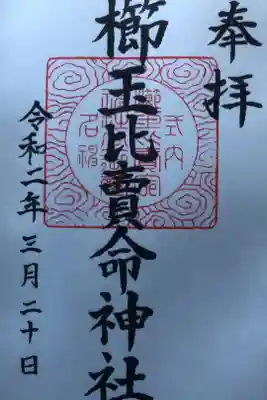 奉拝
櫛玉比賣命神社
令和二年三月二十日
式内